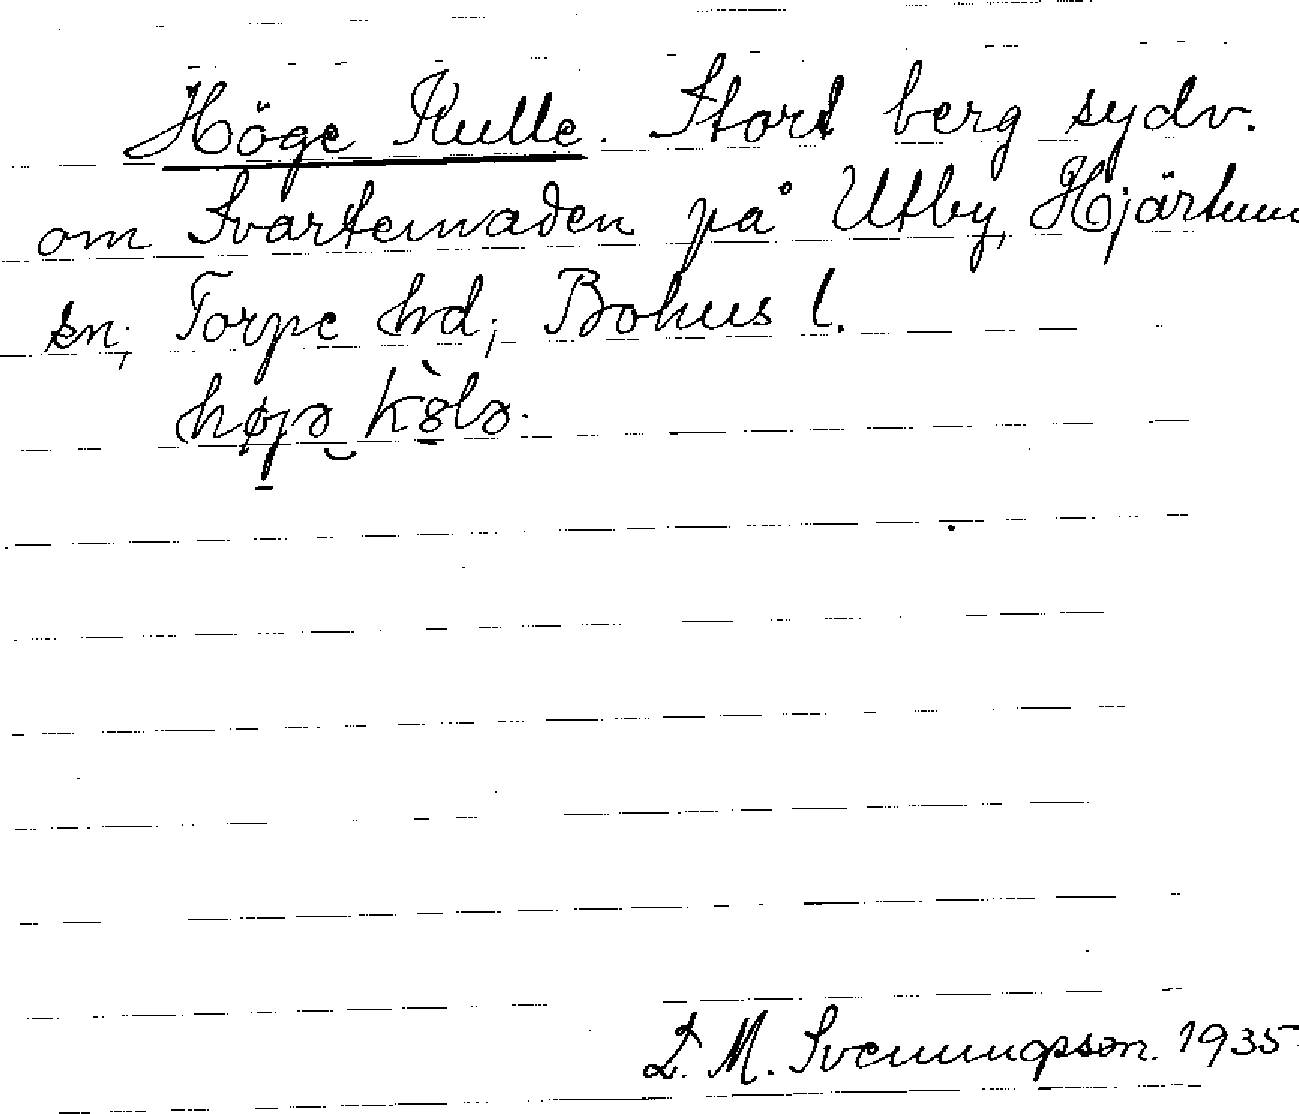 Höge Kulle. Stort berg sydv.
om Svartemaden på Utby, Hjärtum
sn, Torpe hd, Bohus l.
L. M. Svenungsson. 1935